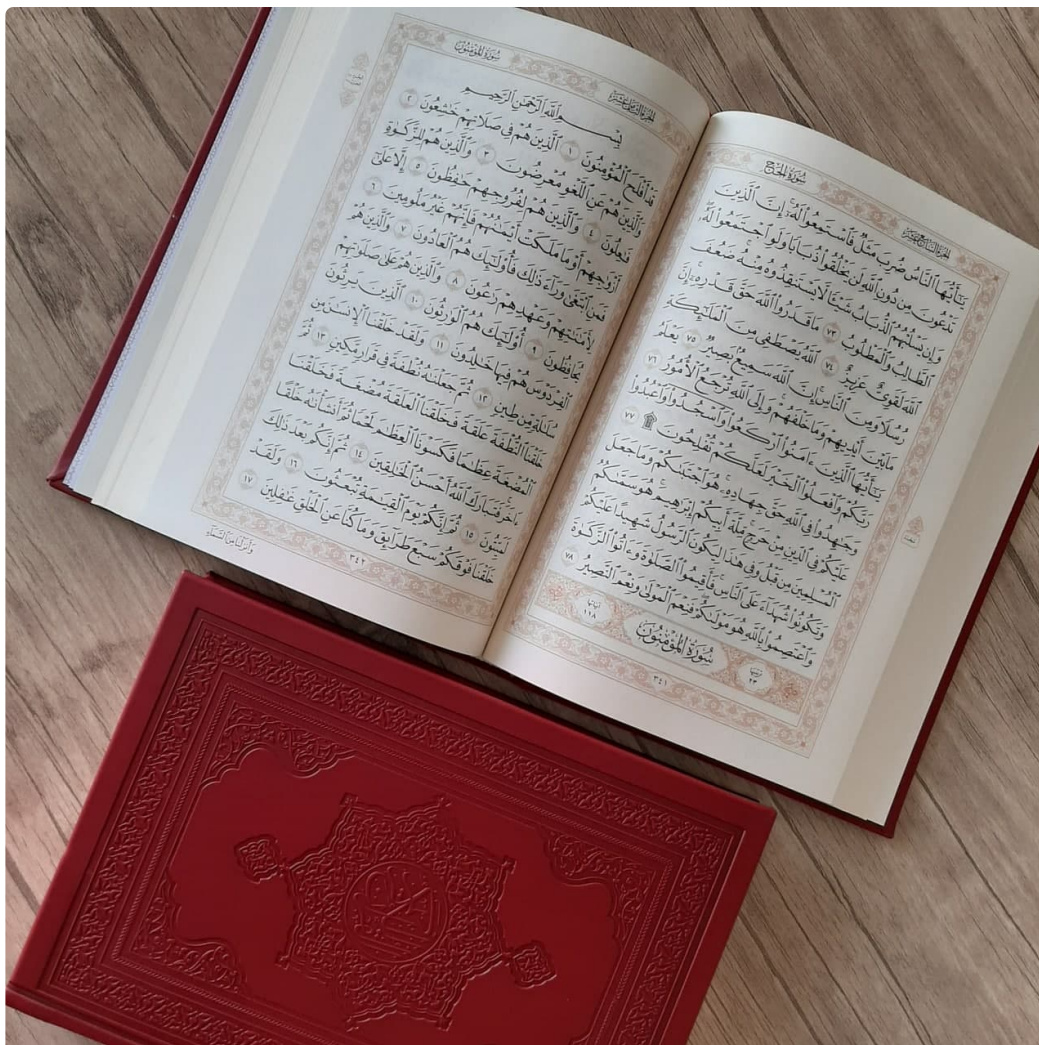 الجزء السابع عشر
سورة الحج
يَـٰٓأَيُّهَا ٱلنَّاسُ ضُرِبَ مَثَلٌ فَٱسْتَمِعُوا۟ لَهُۥٓ ۚ إِنَّ ٱلَّذِينَ
تَدْعُونَ مِن دُونِ ٱللَّهِ لَن يَخْلُقُوا۟ ذُبَابًا وَلَوِ ٱجْتَمَعُوا۟ لَهُۥ ۖ
وَإِن يَسْلُبْهُمُ ٱلذُّبَابُ شَيْـًٔا لَّا يَسْتَنقِذُوهُ مِنْهُ ۚ ضَعُفَ
ٱلطَّالِبُ وَٱلْمَطْلُوبُ ٧٣ مَا قَدَرُوا۟ ٱللَّهَ حَقَّ قَدْرِهِۦٓ ۗ إِنَّ
ٱللَّهَ لَقَوِىٌّ عَزِيزٌ ٧٤ ٱللَّهُ يَصْطَفِى مِنَ ٱلْمَلَـٰٓئِكَةِ
رُسُلًا وَمِنَ ٱلنَّاسِ ۚ إِنَّ ٱللَّهَ سَمِيعٌۢ بَصِيرٌ ٧٥ يَعْلَمُ
مَا بَيْنَ أَيْدِيهِمْ وَمَا خَلْفَهُمْ ۗ وَإِلَى ٱللَّهِ تُرْجَعُ ٱلْأُمُورُ ٧٦
يَـٰٓأَيُّهَا ٱلَّذِينَ ءَامَنُوا۟ ٱرْكَعُوا۟ وَٱسْجُدُوا۟ وَٱعْبُدُوا۟
رَبَّكُمْ وَٱفْعَلُوا۟ ٱلْخَيْرَ لَعَلَّكُمْ تُفْلِحُونَ ۩ ٧٧
وَجَـٰهِدُوا۟ فِى ٱللَّهِ حَقَّ جِهَادِهِۦ ۚ هُوَ ٱجْتَبَىٰكُمْ وَمَا جَعَلَ
عَلَيْكُمْ فِى ٱلدِّينِ مِنْ حَرَجٍ ۚ مِّلَّةَ أَبِيكُمْ إِبْرَٰهِيمَ ۚ هُوَ سَمَّىٰكُمُ
ٱلْمُسْلِمِينَ مِن قَبْلُ وَفِى هَـٰذَا لِيَكُونَ ٱلرَّسُولُ شَهِيدًا عَلَيْكُمْ
وَتَكُونُوا۟ شُهَدَآءَ عَلَى ٱلنَّاسِ ۚ فَأَقِيمُوا۟ ٱلصَّلَوٰةَ وَءَاتُوا۟ ٱلزَّكَوٰةَ
وَٱعْتَصِمُوا۟ بِٱللَّهِ هُوَ مَوْلَىٰكُمْ ۖ فَنِعْمَ ٱلْمَوْلَىٰ وَنِعْمَ ٱلنَّصِيرُ ٧٨
ترتيبها ٢٣
سُورَةُ المُؤْمِنُونَ
آياتها ١١٨
٣٤١
الجزء الثامن عشر
سورة المؤمنون
بِسْمِ ٱللَّهِ ٱلرَّحْمَـٰنِ ٱلرَّحِيمِ
قَدْ أَفْلَحَ ٱلْمُؤْمِنُونَ ١ ٱلَّذِينَ هُمْ فِى صَلَاتِهِمْ خَـٰشِعُونَ ٢
وَٱلَّذِينَ هُمْ عَنِ ٱللَّغْوِ مُعْرِضُونَ ٣ وَٱلَّذِينَ هُمْ لِلزَّكَوٰةِ
فَـٰعِلُونَ ٤ وَٱلَّذِينَ هُمْ لِفُرُوجِهِمْ حَـٰفِظُونَ ٥ إِلَّا عَلَىٰٓ
أَزْوَٰجِهِمْ أَوْ مَا مَلَكَتْ أَيْمَـٰنُهُمْ فَإِنَّهُمْ غَيْرُ مَلُومِينَ ٦
فَمَنِ ٱبْتَغَىٰ وَرَآءَ ذَٰلِكَ فَأُو۟لَـٰٓئِكَ هُمُ ٱلْعَادُونَ ٧ وَٱلَّذِينَ هُمْ
لِأَمَـٰنَـٰتِهِمْ وَعَهْدِهِمْ رَٰعُونَ ٨ وَٱلَّذِينَ هُمْ عَلَىٰ صَلَوَٰتِهِمْ
يُحَافِظُونَ ٩ أُو۟لَـٰٓئِكَ هُمُ ٱلْوَٰرِثُونَ ١٠ ٱلَّذِينَ يَرِثُونَ
ٱلْفِرْدَوْسَ هُمْ فِيهَا خَـٰلِدُونَ ١١ وَلَقَدْ خَلَقْنَا ٱلْإِنسَـٰنَ مِن
سُلَـٰلَةٍ مِّن طِينٍ ١٢ ثُمَّ جَعَلْنَـٰهُ نُطْفَةً فِى قَرَارٍ مَّكِينٍ ١٣ ثُمَّ
خَلَقْنَا ٱلنُّطْفَةَ عَلَقَةً فَخَلَقْنَا ٱلْعَلَقَةَ مُضْغَةً فَخَلَقْنَا
ٱلْمُضْغَةَ عِظَـٰمًا فَكَسَوْنَا ٱلْعِظَـٰمَ لَحْمًا ثُمَّ أَنشَأْنَـٰهُ خَلْقًا
ءَاخَرَ ۚ فَتَبَارَكَ ٱللَّهُ أَحْسَنُ ٱلْخَـٰلِقِينَ ١٤ ثُمَّ إِنَّكُم بَعْدَ ذَٰلِكَ
لَمَيِّتُونَ ١٥ ثُمَّ إِنَّكُمْ يَوْمَ ٱلْقِيَـٰمَةِ تُبْعَثُونَ ١٦ وَلَقَدْ
خَلَقْنَا فَوْقَكُمْ سَبْعَ طَرَآئِقَ وَمَا كُنَّا عَنِ ٱلْخَلْقِ غَـٰفِلِينَ ١٧
٣٤٢
وَأَنزَلْنَا مِنَ السَّمَاءِ